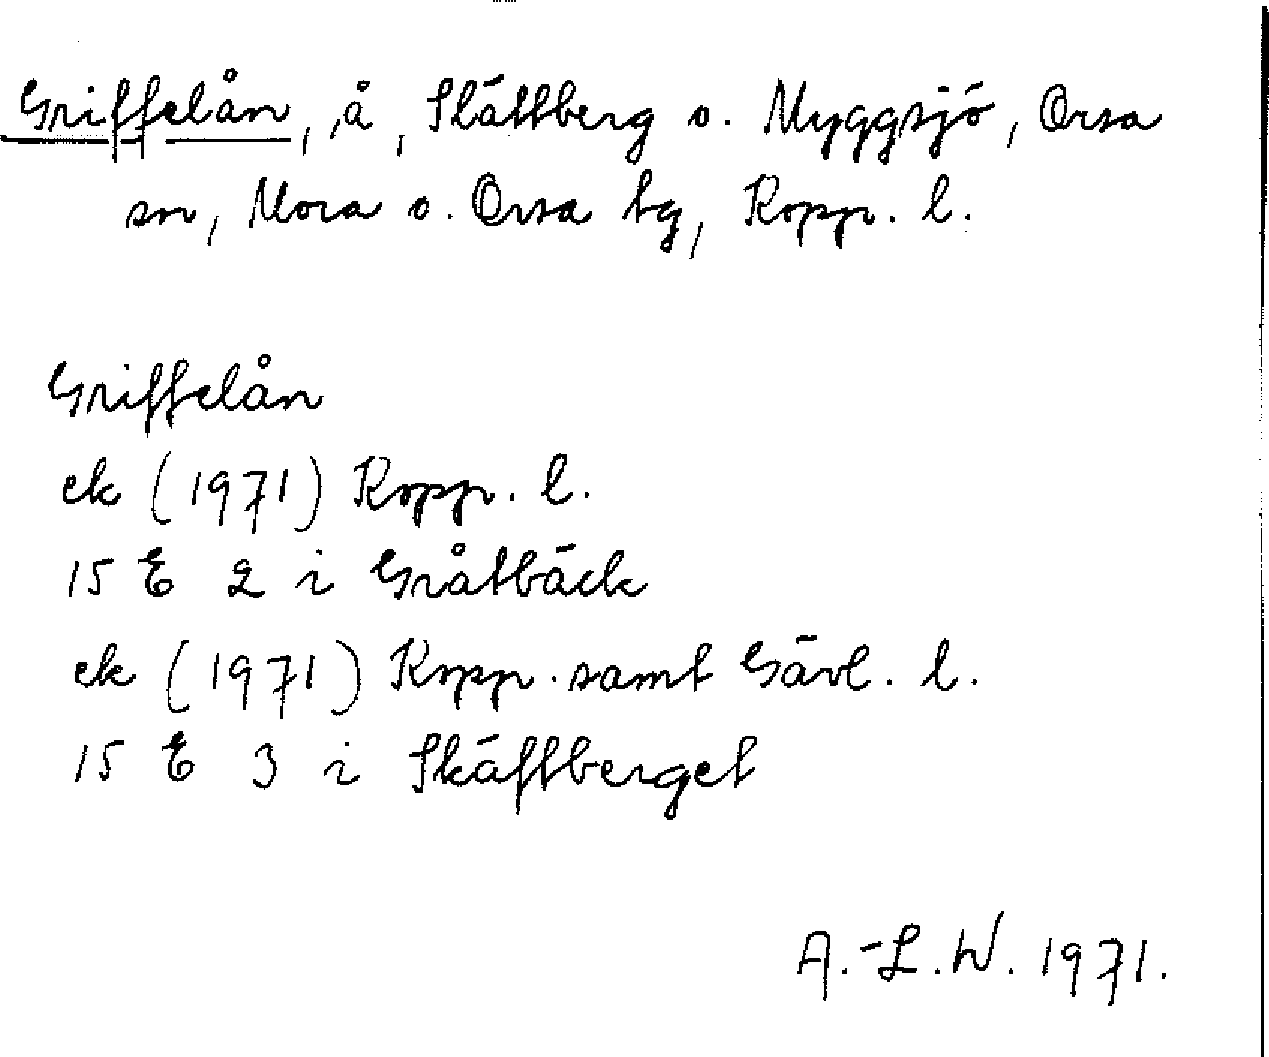 Griffelån, å, Slättberg o. Myggsjö, Orsa
sn, Mora o. Orsa tg, Kopp. l.
Griffelån
ek (1971) Kopp. l.
15 E 2 i Gråtbäck
ek (1971) Kopp. samt Gävl. l.
15 E 3 i Skäftberget
A.-L.W. 1971.